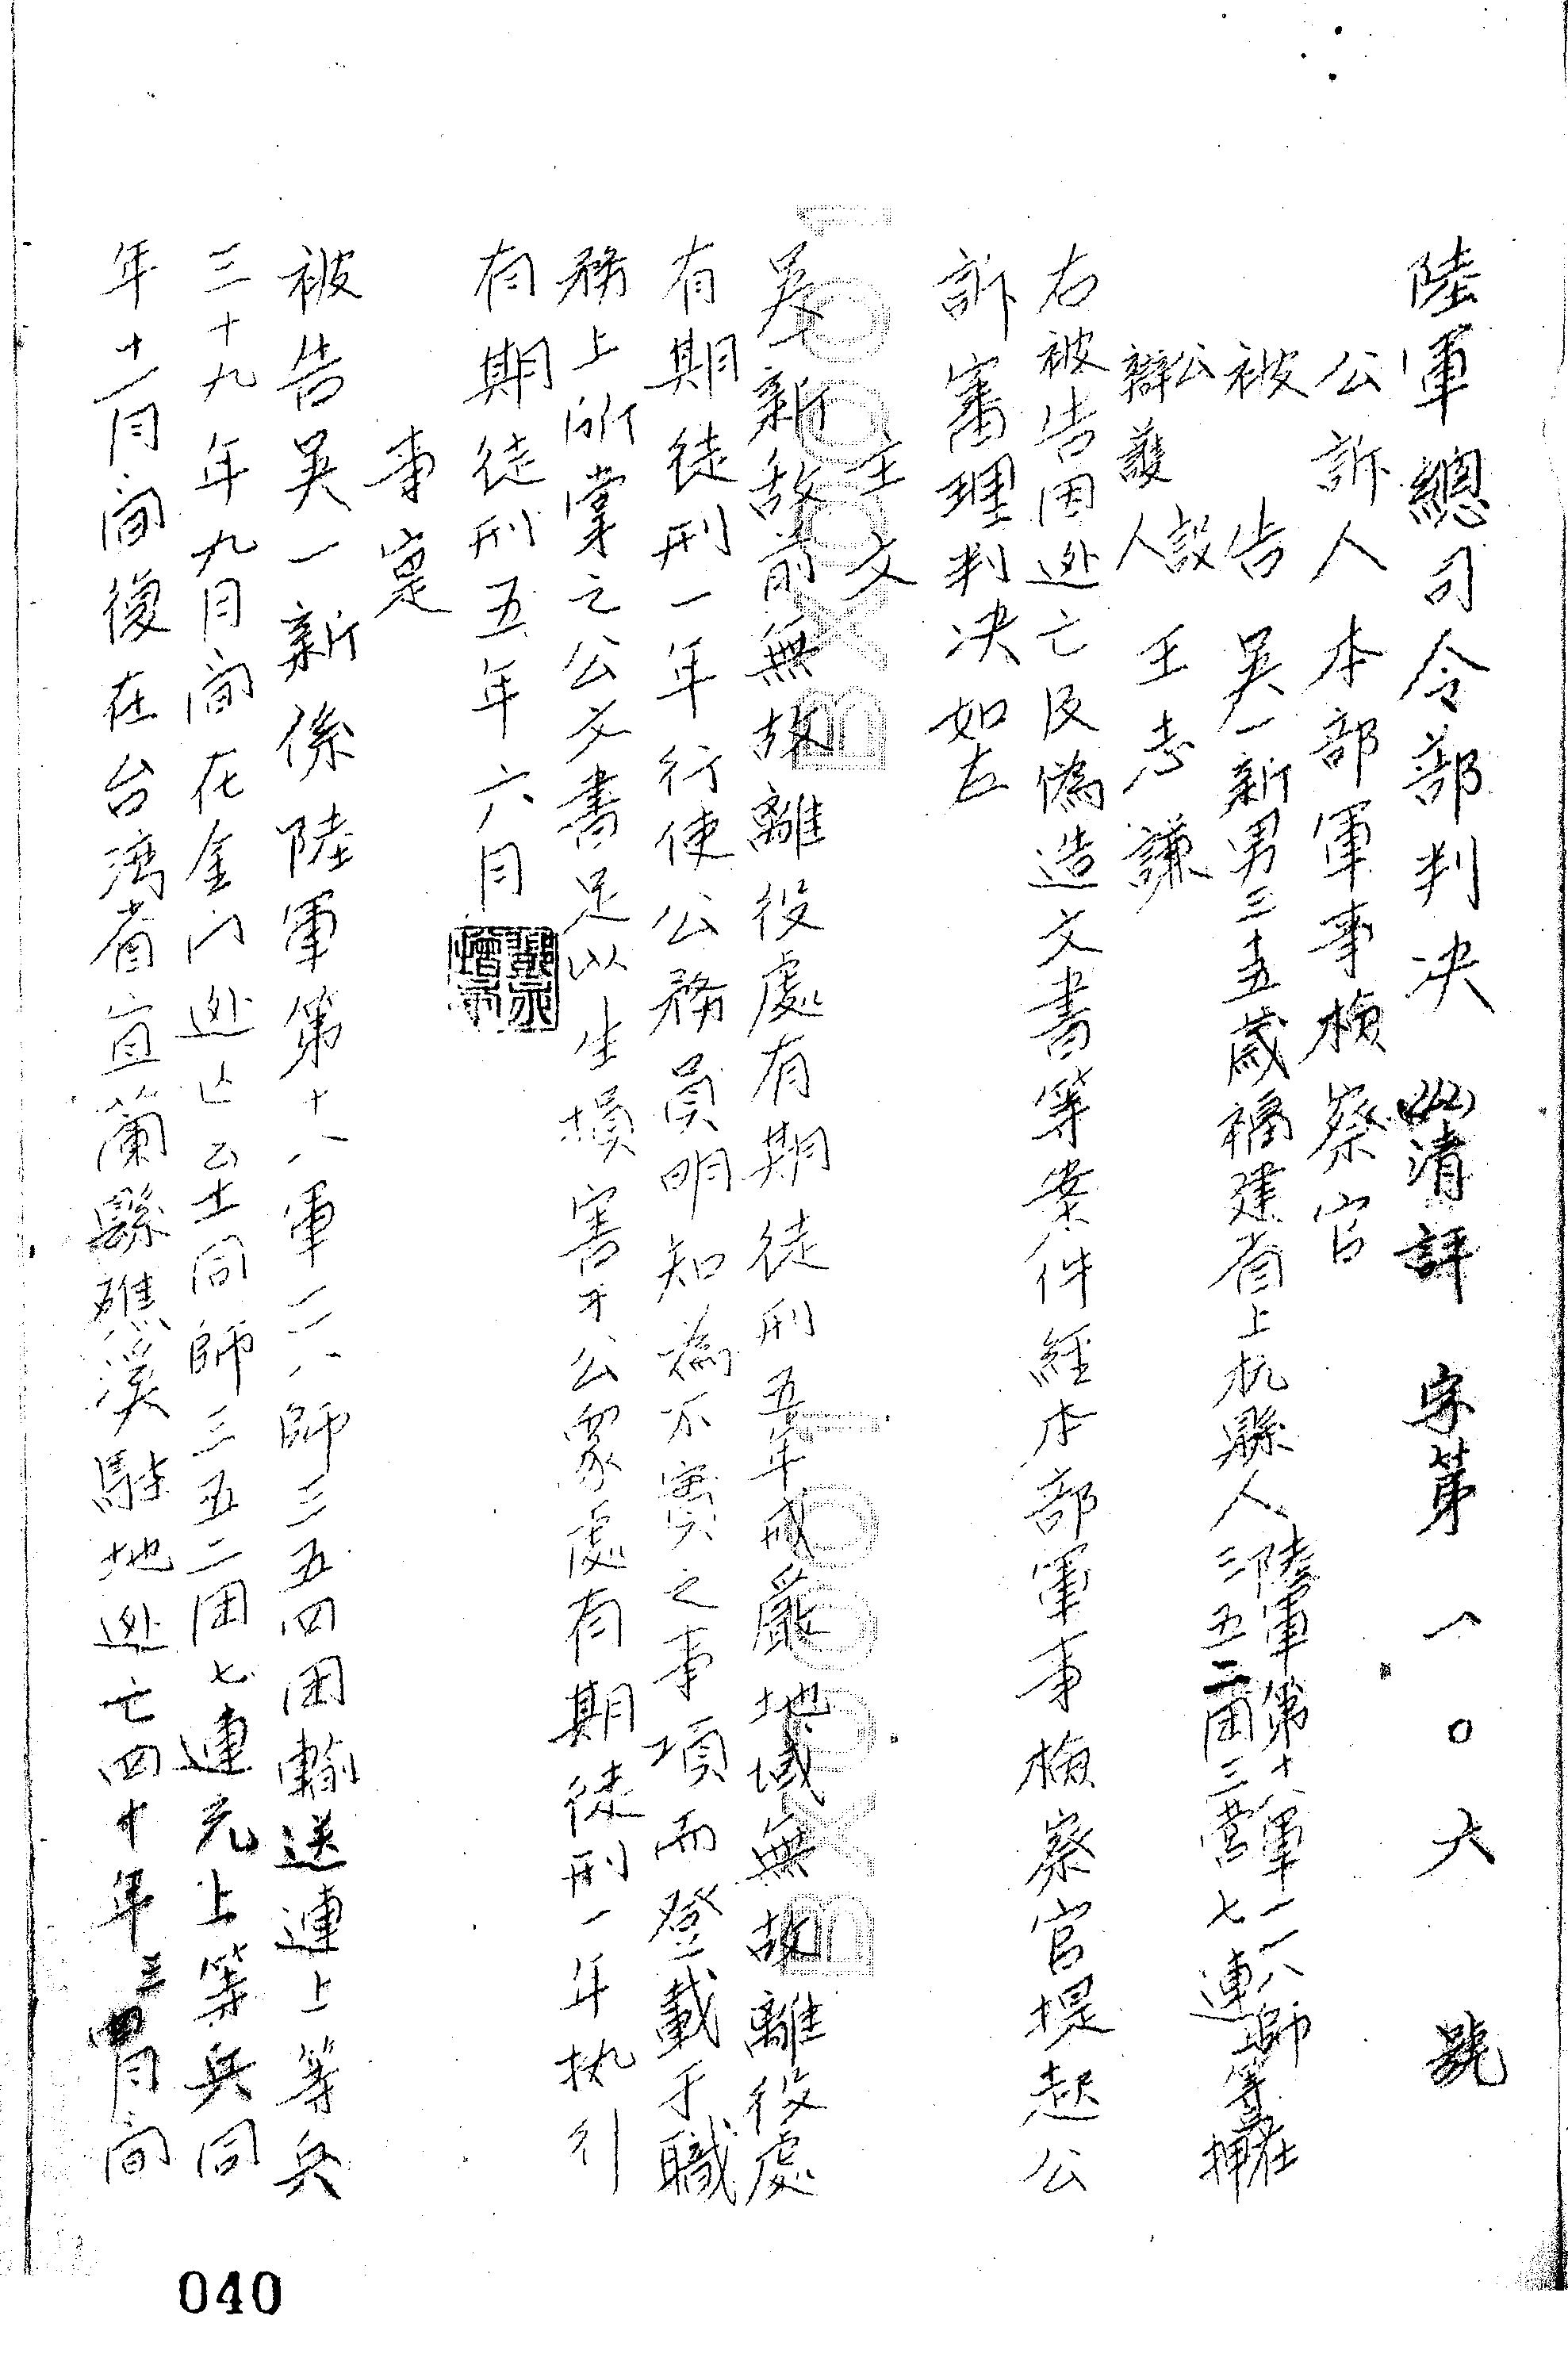 陸軍總司令部判決 清評字第一〇六號
公訴人 本部軍事檢察官
被告 吳一新男三十五歲福建省上杭縣人陸軍第十八軍一一八師三五二團三營七連 等 在押
公設辯護人 王志謙
右被告因逃亡及偽造文書等案件經本部軍事檢察官提起公
訴審理判決如左
主文
吳一新敵前無故離役處有期徒刑五年戒嚴地域無故離役處
有期徒刑一年行使公務員明知為不實之事項而登載于職
務上所掌之公文書足以生損害于公眾處有期徒刑一年執行
有期徒刑五年六月
事實
被告吳一新係陸軍第十八軍一一八師三五四團輸送連上等兵
三十九年九月間在金門逃亡至同師三五二團七連充上等兵同
年十一月間復在台灣省宜蘭縣礁溪駐地逃亡四十年三月間
040
BX0001
BX0001